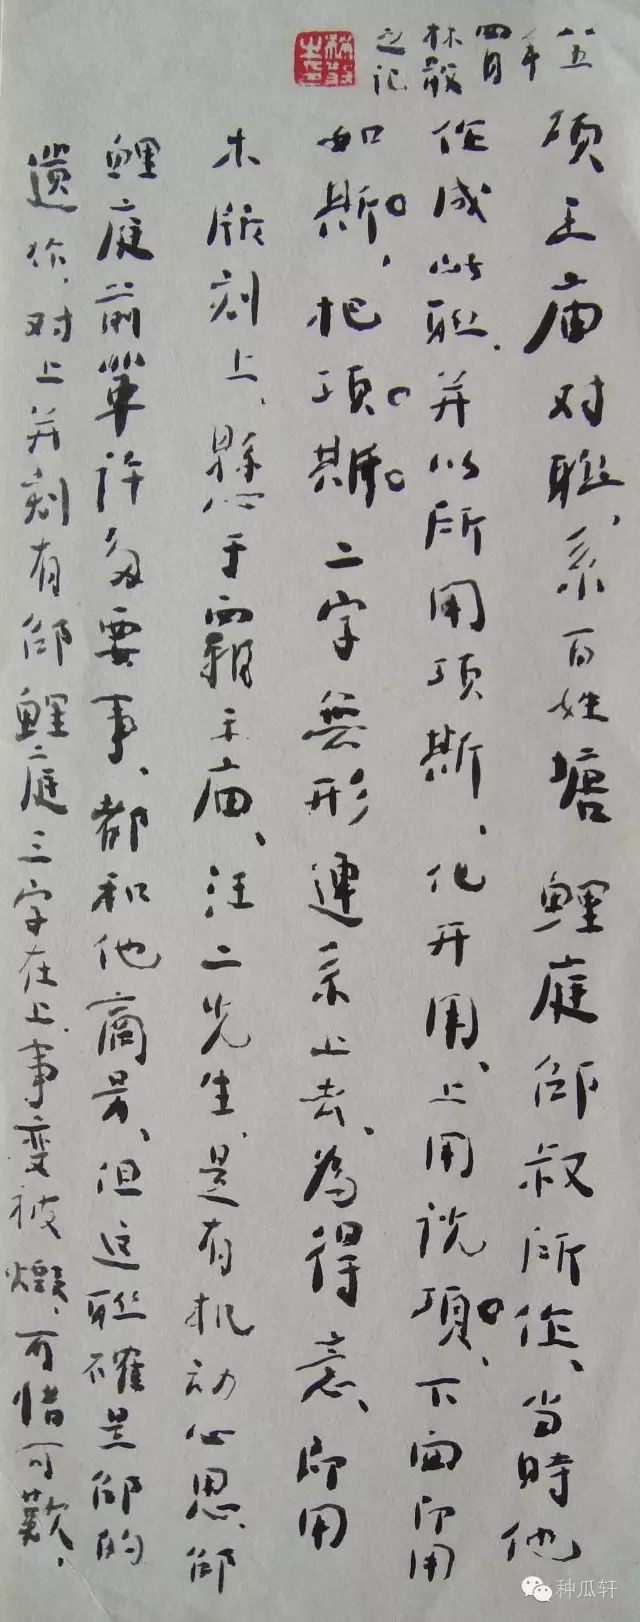 项王庙对联、系百姓塘鲤庭邰叔所作、当時他
作成此联、并以所用项斯、化开用、上用说项、下面即用
如斯、把项斯二字無形連系上去、為得意、即用
木版刻上、縣心于霸王庙、汪二先生、是有机动心思、邰
鲤庭前輩许多要事、都和他商量、但这联確是邰的
遗作、对上并刻有邰鲤庭三字在上、事変被燬、可惜可歎、
八五年
四月
林散
之记
种瓜轩